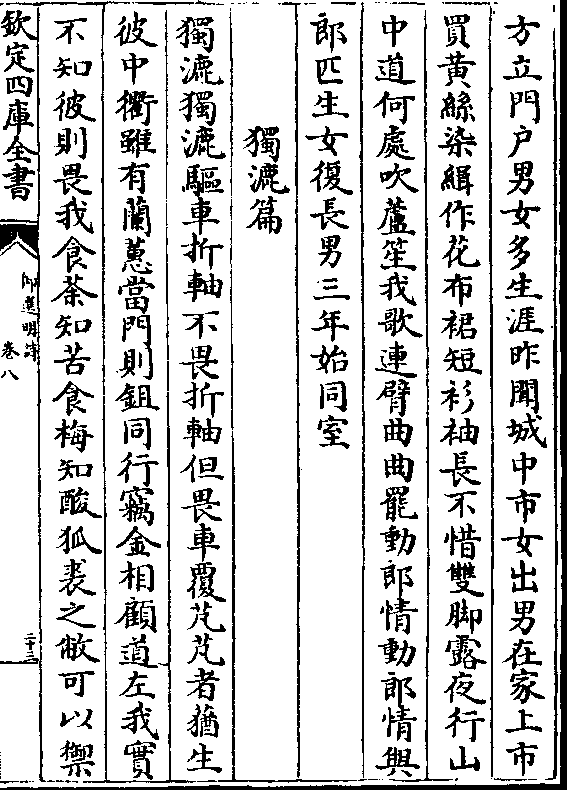 方立門戶男女多生涯昨聞城中市女出男在家上市
買黃絲染緝作花布裙短衫袖長不惜雙脚露夜行山
中道何處吹蘆笙我歌連臂曲曲罷動郎情動郎情與
郎匹生女復長男三年始同室
獨漉篇
獨漉獨漉驅車折軸不畏折軸但畏車覆芃芃者蕕生
彼中衢雖有蘭蕙當門則鉏同行竊金相顧道左我實
不知彼則畏我食荼知苦食梅知酸狐裘之敝可以禦
欽定四庫全書
御選明詩
卷八
二十三